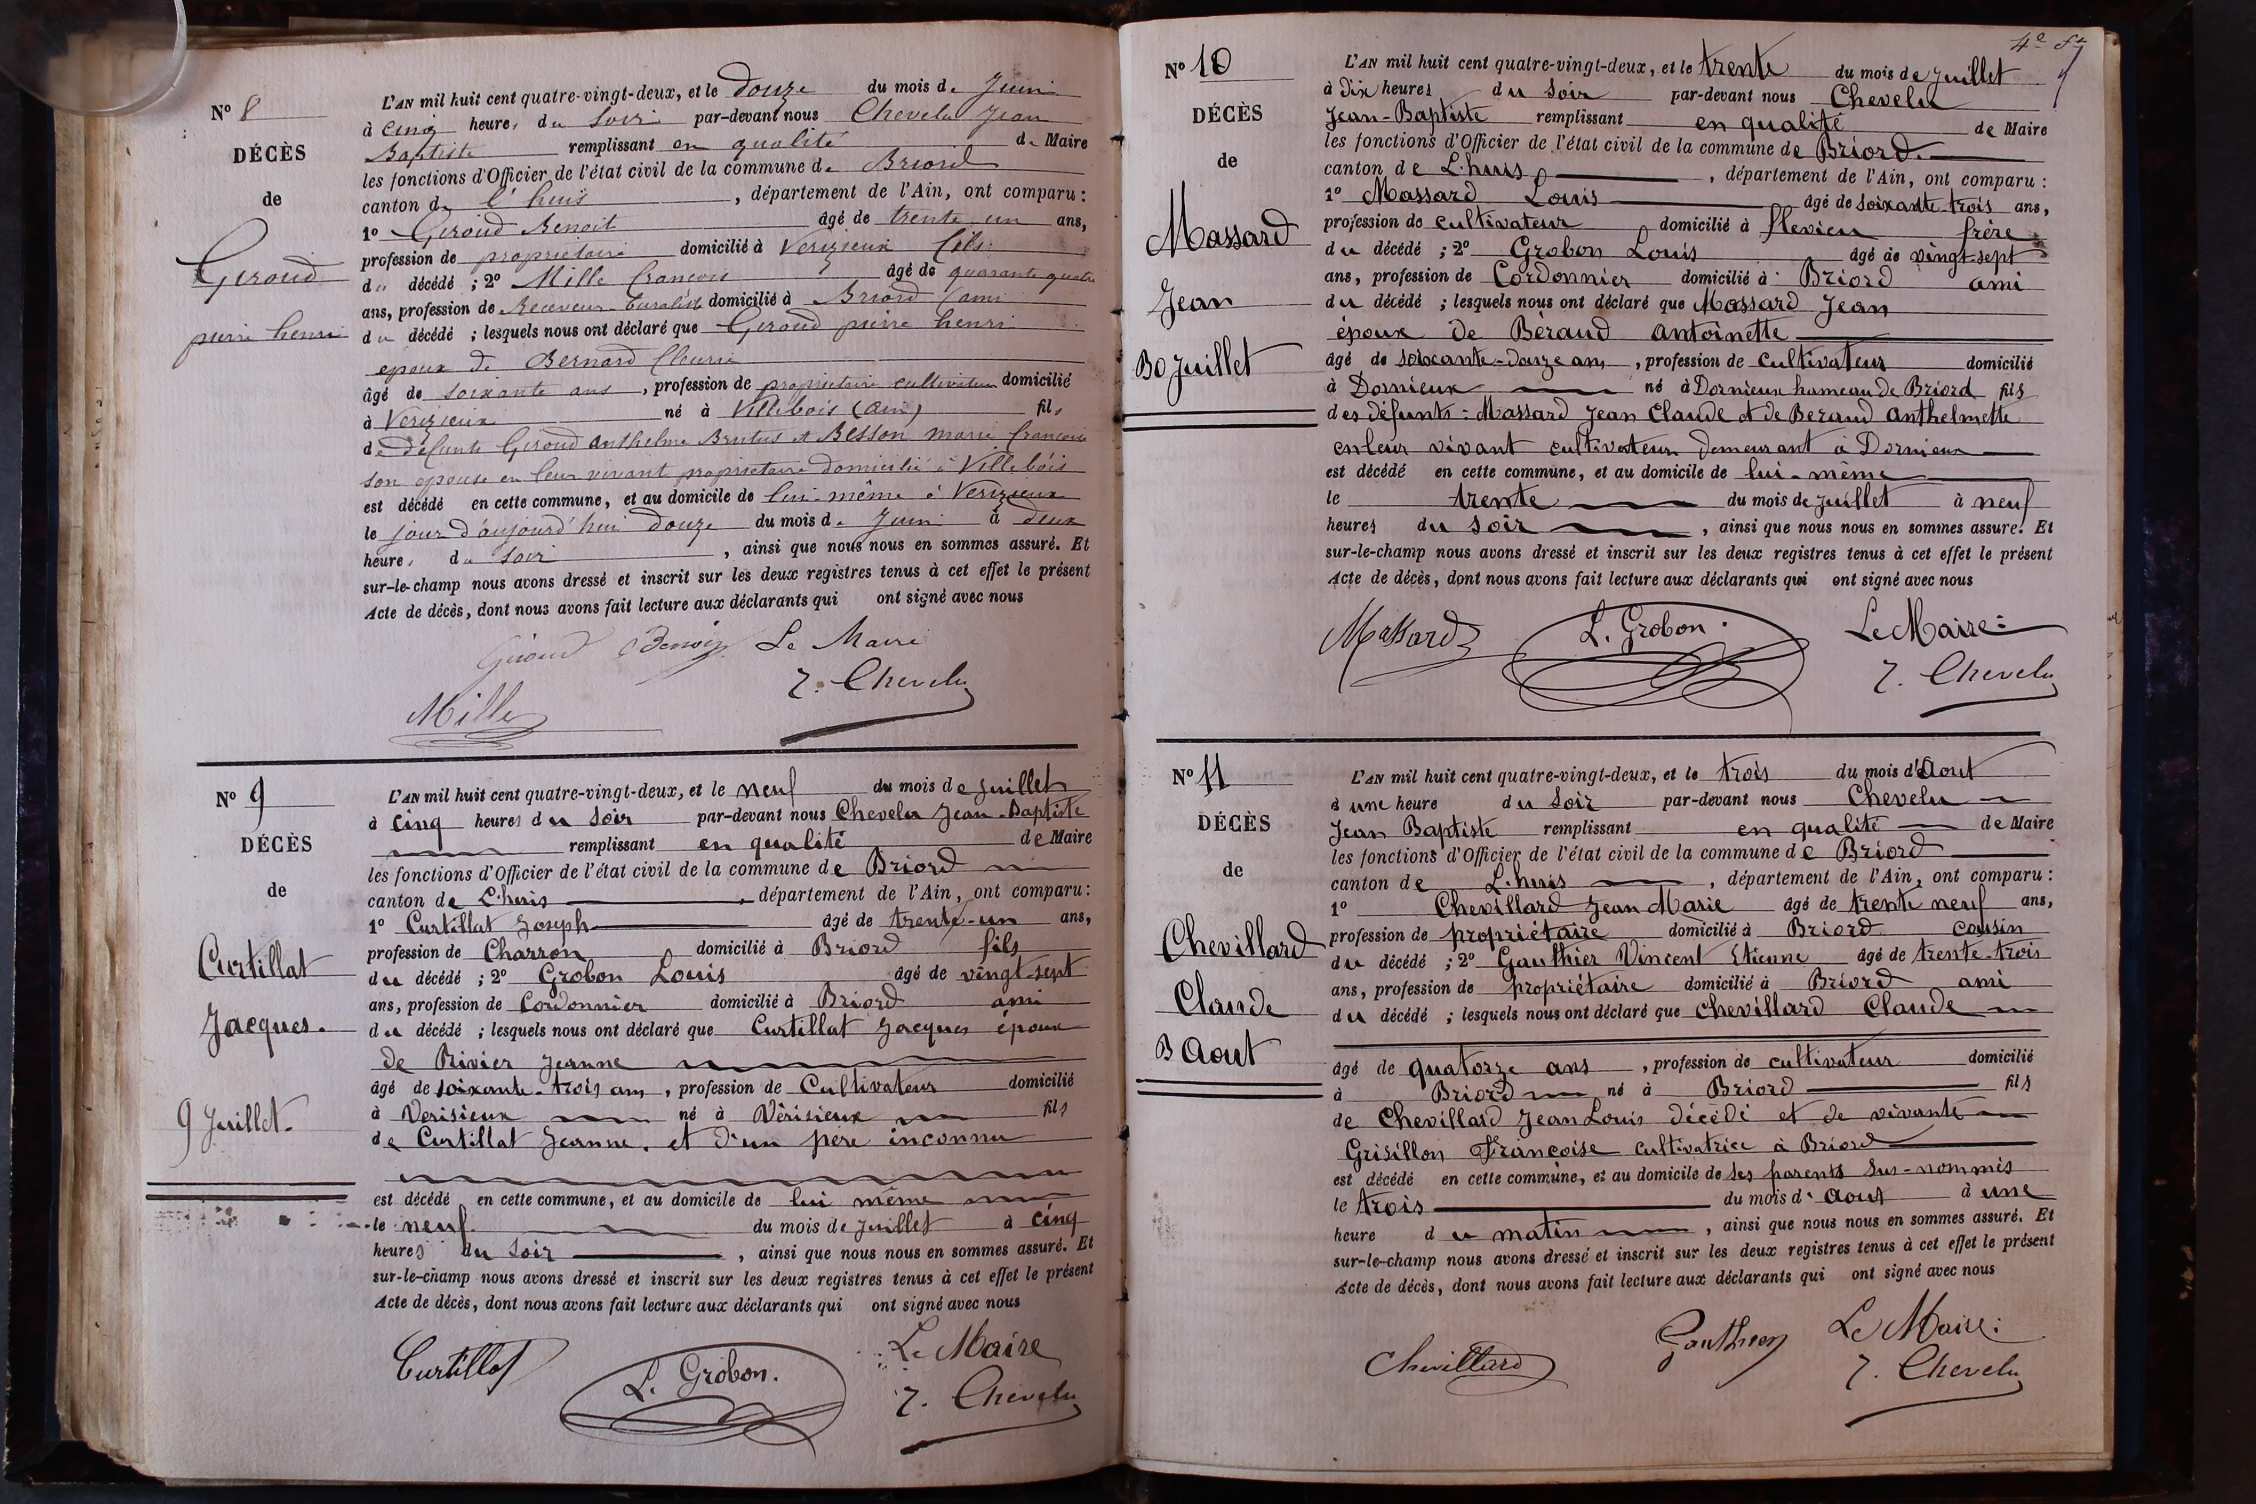 N° 8
DÉCÈS
de
Geroud
pierre henri
L'AN mil huit cent quatre-vingt-deux, et le Douze du mois de Juin
à cinq heures du soir par-devant nous Chevelu Jean
Baptiste remplissant en qualité de Maire
les fonctions d'Officier de l'état civil de la commune de Briord
canton de l'huis, département de l'Ain, ont comparu :
1° Geroud Benoit âgé de trente un ans,
profession de propriétaire domicilié à Verizieux fils
du décédé ; 2° Mille françois âgé de quarante quatre
ans, profession de Receveur Buraliste domicilié à Briord (ami
du décédé ; lesquels nous ont déclaré que Geroud pierre henri
epoux de Bernard fleurie
âgé de soixante ans, profession de propriétaire cultivateur domicilié
à Verizieux né à Villebois (ain) fils
de défunts Geroud anthelme Brutus et Besson marie françoise
son epouse en leur vivant propriétaire domicilié à Villebois
est décédé en cette commune, et au domicile de lui-même à Verizieux
le jour d'aujourd'hui douze du mois de Juin à deux
heures du soir, ainsi que nous nous en sommes assuré. Et
sur-le-champ nous avons dressé et inscrit sur les deux registres tenus à cet effet le présent
Acte de décès, dont nous avons fait lecture aux déclarants qui ont signé avec nous
Giroud Benoit Le Maire
J. Chevelu
Mille
N° 9
DÉCÈS
de
Curtillat
Jacques.
9 Juillet.
L'AN mil huit cent quatre-vingt-deux, et le neuf du mois de Juillet
à cinq heures du soir par-devant nous Chevelu Jean-Baptiste
remplissant en qualité de Maire
les fonctions d'Officier de l'état civil de la commune de Briord
canton de L'huis, département de l'Ain, ont comparu :
1° Curtillat Joseph âgé de trente-un ans,
profession de Charron domicilié à Briord fils
du décédé ; 2° Grobon Louis âgé de vingt-sept
ans, profession de Cordonnier domicilié à Briord ami
du décédé ; lesquels nous ont déclaré que Curtillat Jacques époux
de Rivier Jeanne
âgé de soixante-trois ans, profession de Cultivateur domicilié
à Verisieux né à Vérisieux fils
de Curtillat Jeanne, et d'un pere inconnu
est décédé en cette commune, et au domicile de lui même
le neuf du mois de Juillet à cinq
heures du soir, ainsi que nous nous en sommes assuré. Et
sur-le-champ nous avons dressé et inscrit sur les deux registres tenus à cet effet le présent
Acte de décès, dont nous avons fait lecture aux déclarants qui ont signé avec nous
Curtillat
L. Grobon.
Le Maire
J. Chevelu
N° 10
DÉCÈS
de
Massard
Jean
30 Juillet
L'AN mil huit cent quatre-vingt-deux, et le trente du mois de Juillet
à dix heures du soir par-devant nous Chevelu
Jean-Baptiste remplissant en qualité de Maire
les fonctions d'Officier de l'état civil de la commune de Briord.
canton de L'huis, département de l'Ain, ont comparu :
1° Massard Louis âgé de soixante-trois ans,
profession de cultivateur domicilié à flevieu frère
du décédé ; 2° Grobon Louis âgé de vingt-sept
ans, profession de Cordonnier domicilié à Briord ami
du décédé ; lesquels nous ont déclaré que Massard Jean
époux de Béraud antoinette
âgé de soixante-douze ans, profession de cultivateur domicilié
à Dornieux né à Dornieux hameau de Briord fils
des défunts : Massard Jean Claude et de Beraud anthelmette
en leur vivant cultivateurs demeurant à Dornieux
est décédé en cette commune, et au domicile de lui-même
le trente du mois de Juillet à neuf
heures du soir, ainsi que nous nous en sommes assuré. Et
sur-le-champ nous avons dressé et inscrit sur les deux registres tenus à cet effet le présent
Acte de décès, dont nous avons fait lecture aux déclarants qui ont signé avec nous
Massard
L. Grobon.
Le Maire :
J. Chevelu
N° 11
DÉCÈS
de
Chevillard
Claude
3 Aout
L'AN mil huit cent quatre-vingt-deux, et le trois du mois d'Aout
à une heure du soir par-devant nous Chevelu
Jean Baptiste remplissant en qualité de Maire
les fonctions d'Officier de l'état civil de la commune de Briord
canton de L'huis, département de l'Ain, ont comparu :
1° Chevillard Jean Marie âgé de trente neuf ans,
profession de propriétaire domicilié à Briord cousin
du décédé ; 2° Gauthier Vincent Etienne âgé de trente-trois
ans, profession de propriétaire domicilié à Briord ami
du décédé ; lesquels nous ont déclaré que Chevillard Claude
âgé de quatorze ans, profession de cultivateur domicilié
à Briord né à Briord fils
de Chevillard Jean Louis décédé et de vivante
Grisillon Françoise cultivatrice à Briord
est décédé en cette commune, et au domicile de ses parents sus-nommés
le trois du mois d'aout à une
heure du matin, ainsi que nous nous en sommes assuré. Et
sur-le-champ nous avons dressé et inscrit sur les deux registres tenus à cet effet le présent
Acte de décès, dont nous avons fait lecture aux déclarants qui ont signé avec nous
Chevillard
Gauthier
Le Maire :
J. Chevelu